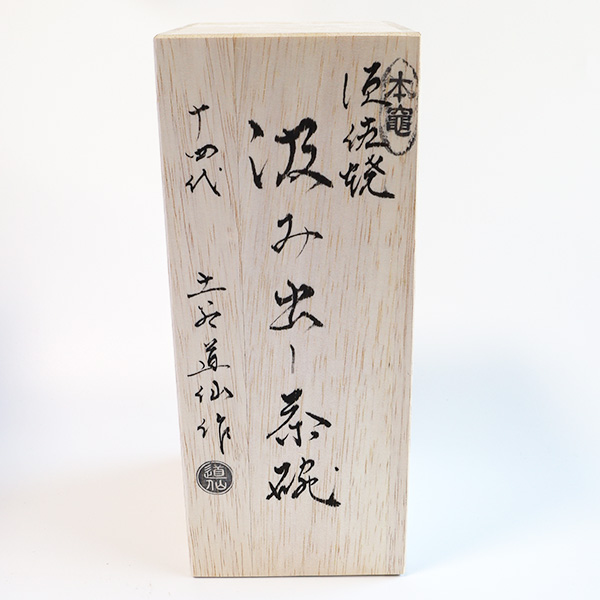 本竈
須佐焼
汲み出し茶碗
十四代
土谷道仙作
道仙